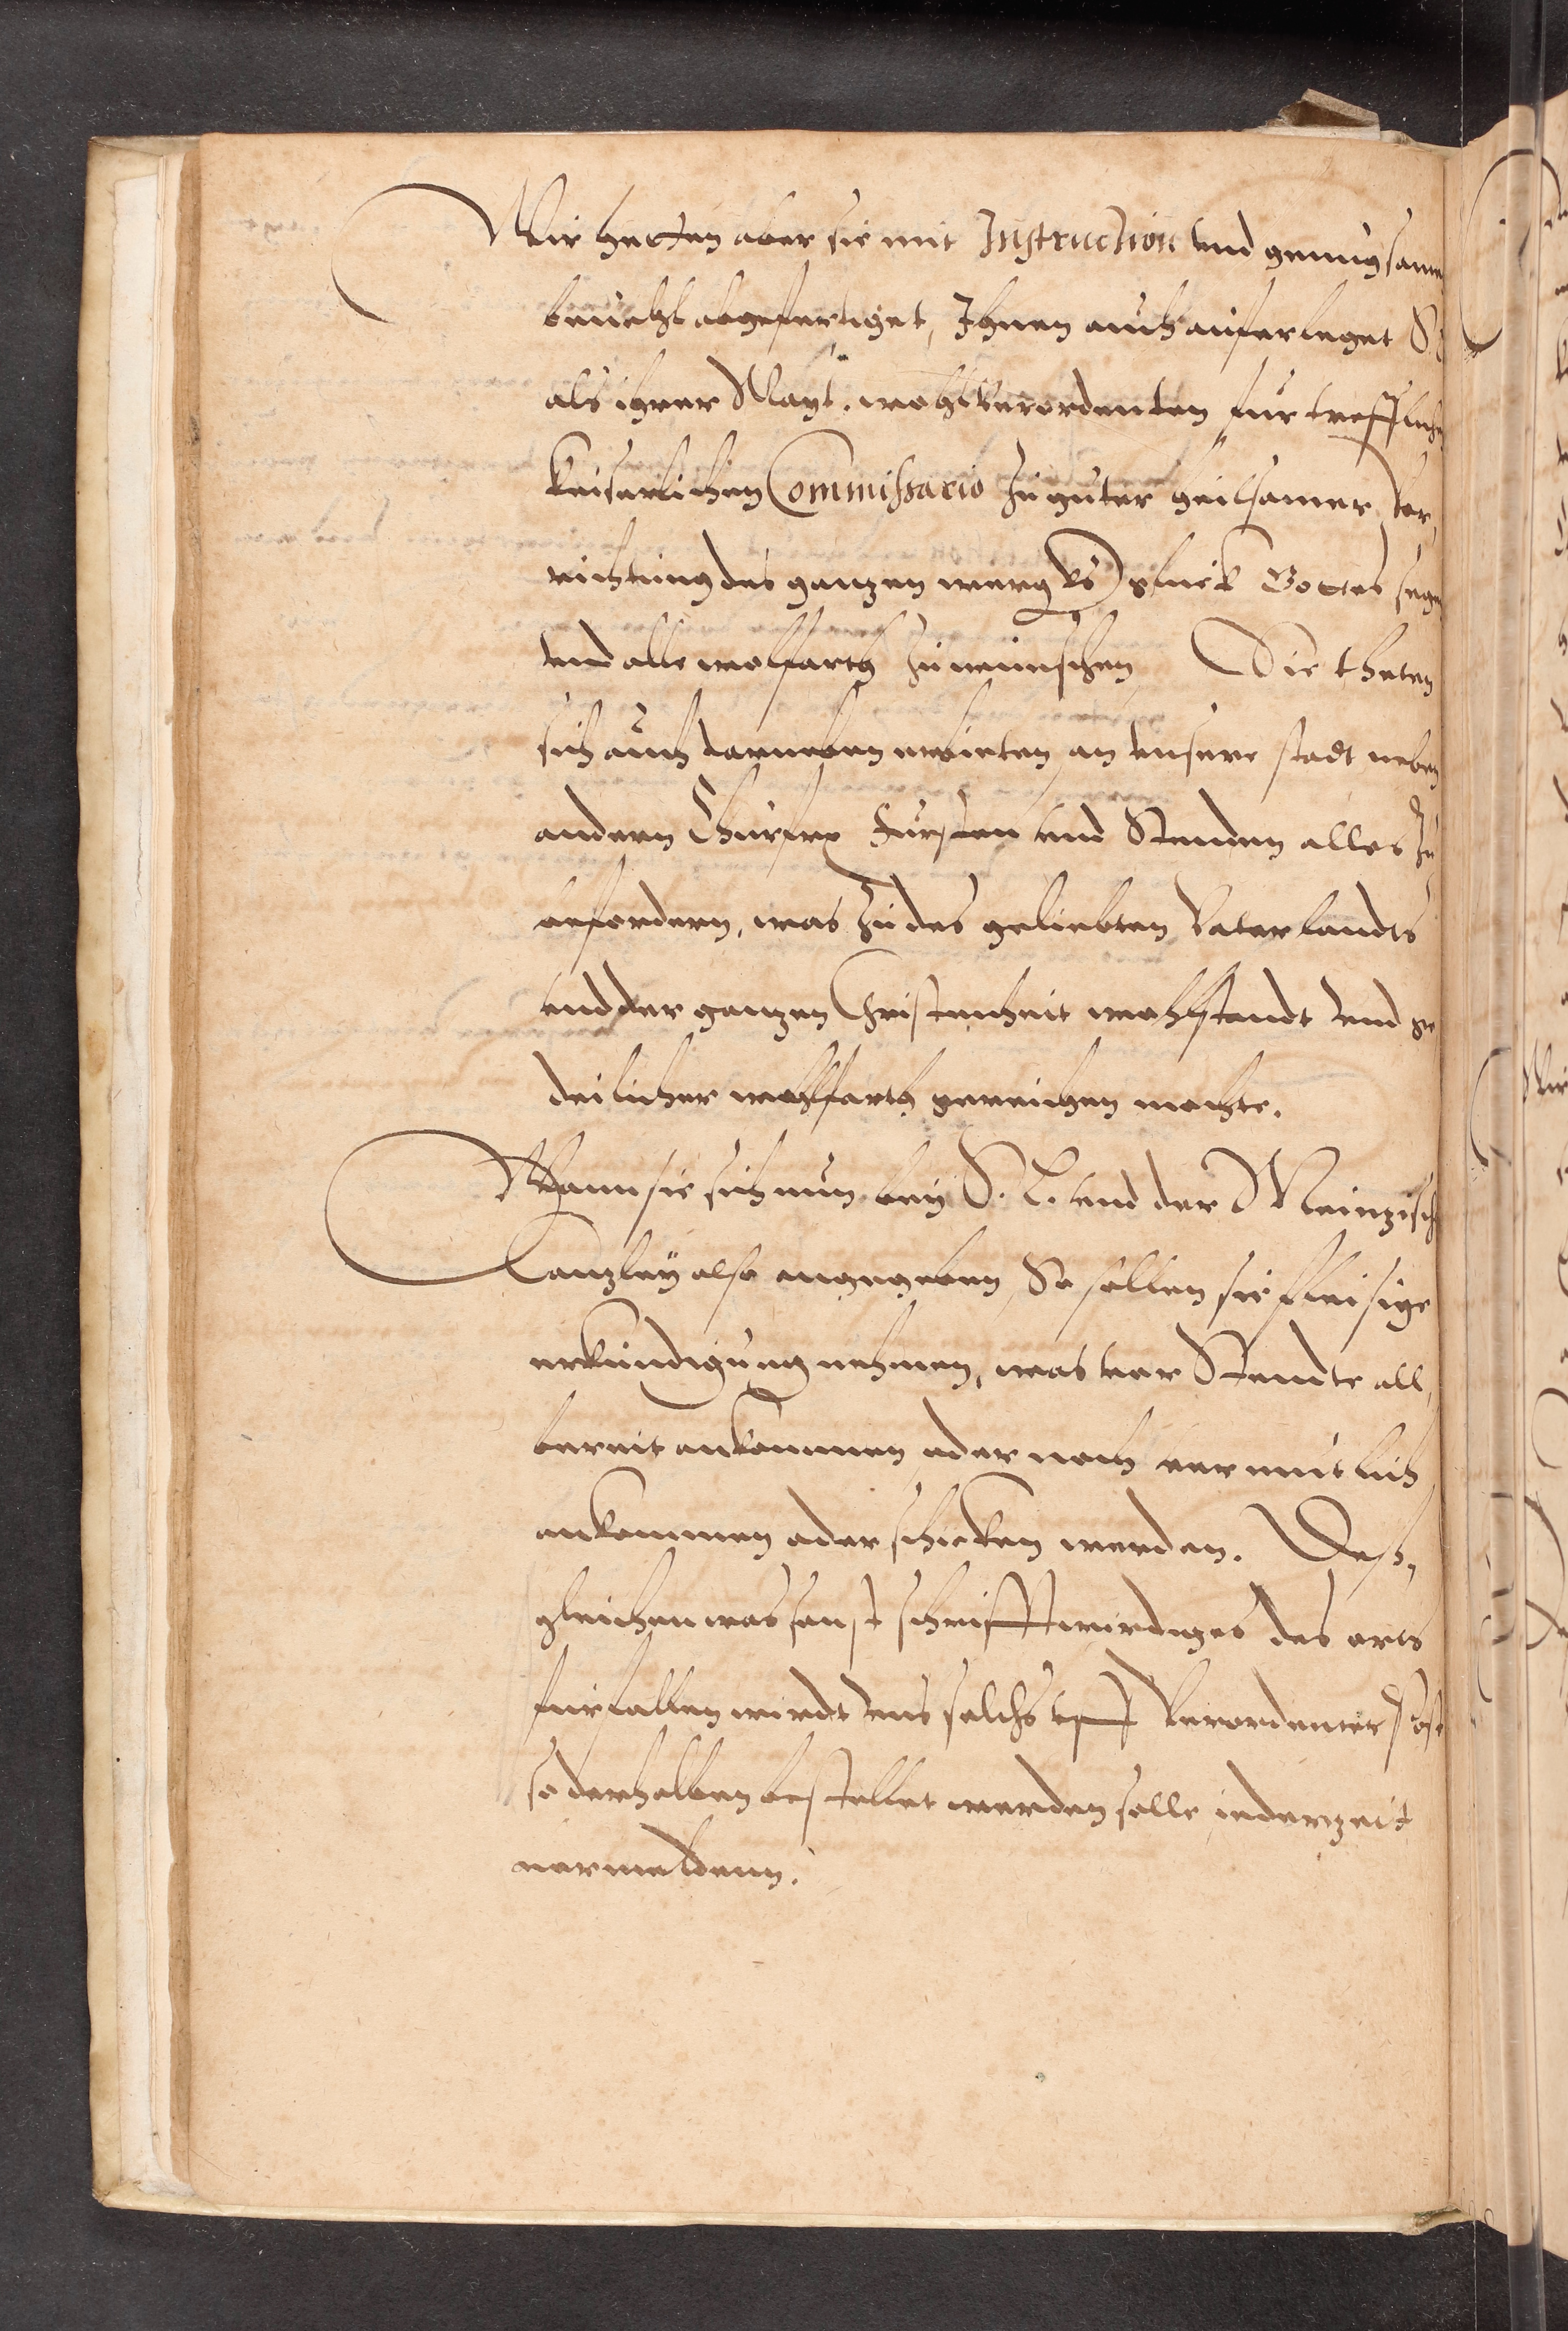 Wir hetten aber sie mit Instruction vnd genugsame
beuehl abgefertiget, Ihnen auch auferleget S.
als ihrer Mayt. wohlverordenten fürtrefflichen
Keiserlichen Commissario zu guter heilsamer ver,
richtung des ganzen wergks glück Gottes segen
vnd alle wolfarth zu wünschen Die theten
sich auch darneben erbieten an vnsere stadt neben
andern Churfr. Fürsten vnd Stenden alles zu
befordern, was zu des geliebten Vaterlandts
vnd der ganzen Christenheit wohlstandt vnd ge
deilicher wohlfarth gereichen mochte.
Wann sie sich nun bey S. L. vnd der Meinzisch
Canzley also angegeben So sollen sie fleisige
erkundigung nehmen, was vor Stende all,
bereit ankommen oder noch vermutlich
ankommen oder schicken werden. Deß,
gleichen was sonst schrifftwirdiges des orts
fürfallen wirdt vns solchs vff verordenter Post
so derhalben bestellet werden solle jederzeit
vermeldenn.